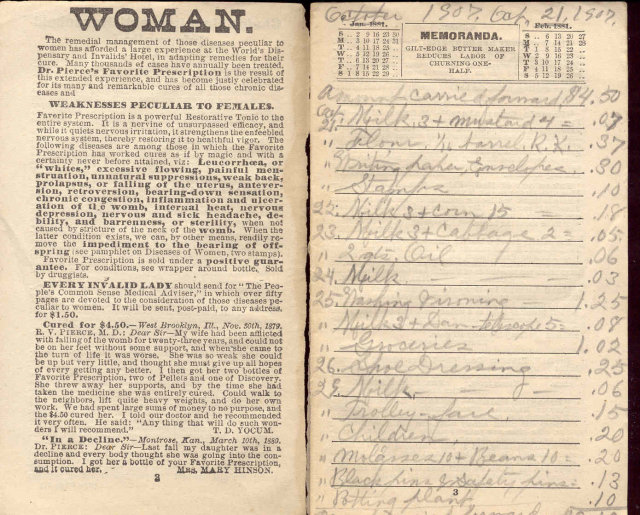 WOMAN.
The remedial management of those diseases peculiar to
women has afforded a large experience at the World's Dis-
pensary and Invalids' Hotel, in adapting remedies for their
cure. Many thousands of cases have annually been treated.
Dr. Pierce's Favorite Prescription is the result of
this extended experience, and has become justly celebrated
for its many and remarkable cures of all those chronic dis-
eases and
WEAKNESSES PECULIAR TO FEMALES.
Favorite Prescription is a powerful Restorative Tonic to the
entire system. It is a nervine of unsurpassed efficacy, and
while it quiets nervous irritation, it strengthens the enfeebled
nervous system, thereby restoring it to healthful vigor. The
following diseases are among those in which the Favorite
Prescription has worked cures as if by magic and with a
certainty never before attained, viz: Leucorrhea, or
"whites," excessive flowing, painful men-
struation, unnatural suppressions, weak back,
prolapsus, or falling of the uterus, antever-
sion, retroversion, bearing-down sensation,
chronic congestion, inflammation and ulcer-
ation of the womb, internal heat, nervous
depression, nervous and sick headache, de-
bility, and barrenness, or sterility, when not
caused by stricture of the neck of the womb. When the
latter condition exists, we can, by other means, readily re-
move the impediment to the bearing of off-
spring (see pamphlet on Diseases of Women, two stamps).
Favorite Prescription is sold under a positive guar-
antee. For conditions, see wrapper around bottle. Sold
by druggists.
EVERY INVALID LADY should send for "The Peo-
ple's Common Sense Medical Adviser," in which over fifty
pages are devoted to the consideration of those diseases pe-
culiar to women. It will be sent, post-paid, to any address,
for $1.50.
Cured for $4.50.—West Brooklyn, Ill., Nov. 30th, 1879.
R. V. PIERCE, M. D.: Dear Sir—My wife had been afflicted
with falling of the womb for twenty-three years, and could not
be on her feet without some support, and when she came to the
turn of life it was worse. She was so weak she could
be up but very little, and thought she must give up all hopes
of every getting any better. I then got her two bottles of
Favorite Prescription, two of Pellets and one of Discovery.
She threw away her supports, and by the time she had
taken the medicine she was entirely cured. Could walk to
the neighbors, lift quite heavy weights, and do her own
work. We had spent large sums of money to no purpose, and
the $4.50 cured her. I told our doctor and he recommended
it very often. He said: "Any thing that will do such won-
ders I will recommend." T. D. YOCUM.
"In a Decline."—Montrose, Kan., March 10th, 1880.
Dr. PIERCE: Dear Sir—Last fall my daughter was in a
decline and every body thought she was going into the con-
sumption. I got her a bottle of your Favorite Prescription,
and it cured her. MRS. MARY HINSON.
3
1907. 21, 1907.
Jan. 1881.
S .. 2 9 16 23 30
M .. 3 10 17 24 31
T .. 4 11 18 25 ..
W .. 5 12 19 26 ..
T .. 6 13 20 27 ..
F .. 7 14 21 28 ..
S 1 8 15 22 29 ..
MEMORANDA.
GILT-EDGE BUTTER MAKER
REDUCES LABOR OF
CHURNING ONE-
HALF.
Feb. 1881.
S .. 6 13 20 27
M .. 7 14 21 28
T 1 8 15 22 ..
W 2 9 16 23 ..
T 3 10 17 24 ..
F 4 11 18 25 ..
S 5 12 19 26 ..
Amount carried forward 84.50
21. Milk 3 + 4 = .07
" Flour 1/16 barrel .37
" Writing paper Envelopes .30
" Stamps .10
Milk 3 + Corn 15 .18
23. Milk 3 + 2 = .05
" .06
24. Milk .03
25. Washing & ironing 1.25
" Milk .08
" Groceries
26. .25
29 Milk .06
" Trolley fare .15
" .20
" Molasses 10 + Beans 10 = .20
" Black pins & Safety pins = .13
" Potting plant .10
3